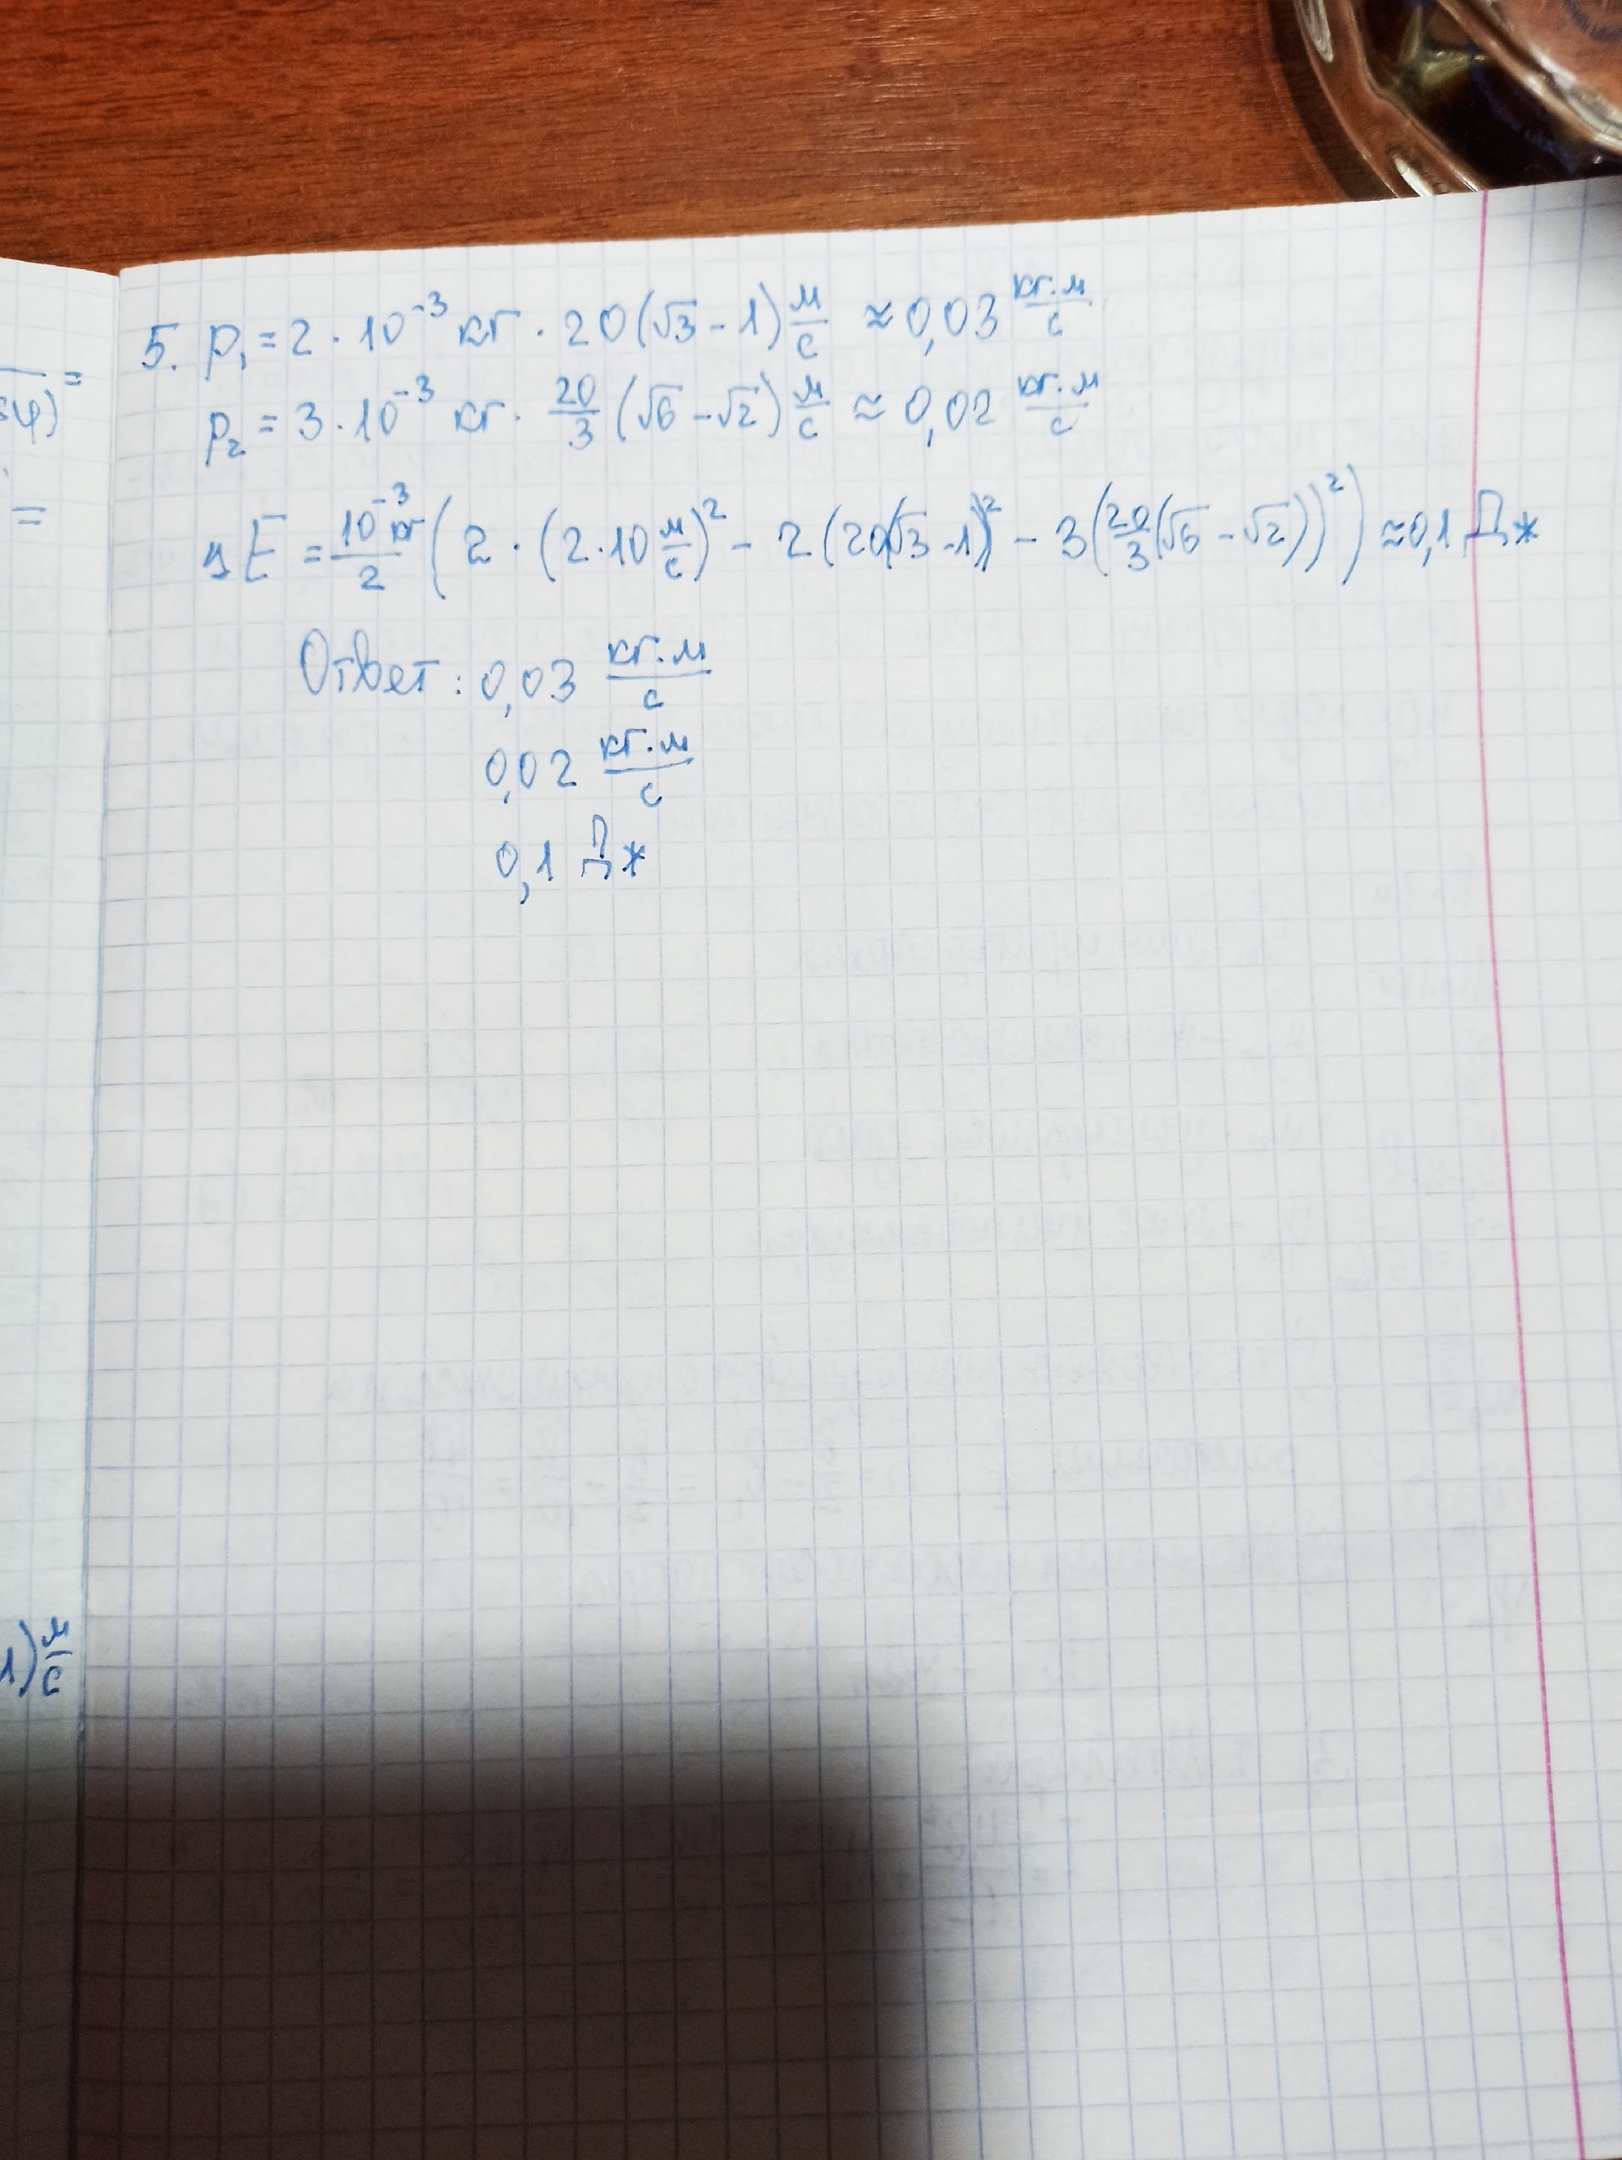 5. p₁ = 2 · 10⁻³ кг · 20(√3 - 1) м/с ≈ 0,03 кг·м/с
p₂ = 3 · 10⁻³ кг · 20/3 (√6 - √2) м/с ≈ 0,02 кг·м/с
E = 10⁻³ кг/2 (2 · (2·10 м/с)² - 2(20(√3 - 1))² - 3(20/3(√6 - √2))²) ≈ 0,1 Дж
Ответ: 0,03 кг·м/с
0,02 кг·м/с
0,1 Дж
1) м/с